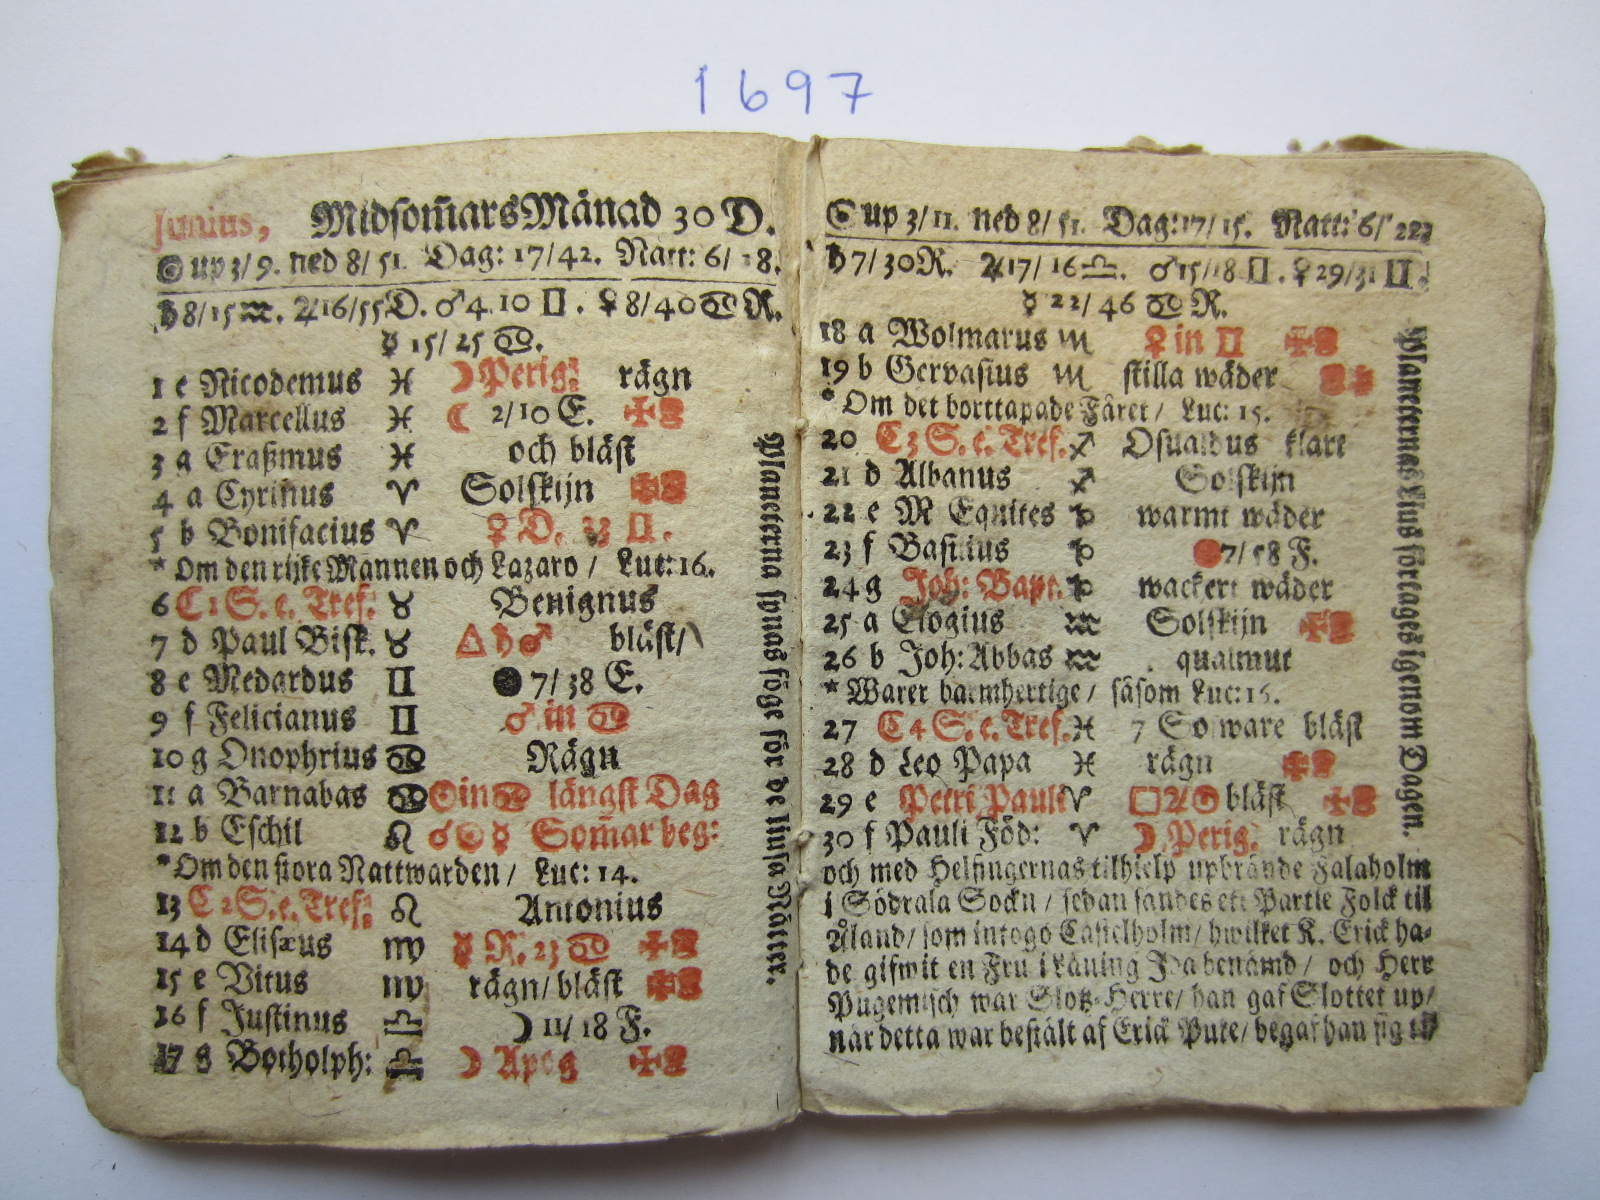 1697
Junius, Midsom̃ars Månad 30 D.
☉ up 3/9. ned 8/51. Dag: 17/42. Natt: 6/18.
♄ 8/15 ♒. ♃ 16/55 D. ♂ 4.10 ♊. ♀ 8/40 ♋ R.
☿ 15/25 ♋.
1 e Nicodemus ♓ ☽ Perig: rägn
2 f Marcellus ♓ ☾ 2/10 E. ✠
3 g Eraßmus ♓ och bläst
4 a Cyrinus ♈ Solskijn ✠
5 b Bonifacius ♈ ♀ D. 23 ♊.
* Om den rijke Mannen och Lazaro / Luc: 16.
6 C 1 S. e. Tref: ♉ Benignus
7 d Paul Bisk. ♉ △ ♄ ♂ bläst/
8 e Medardus ♊ ● 7/38 E.
9 f Felicianus ♊ ♂ in ♋
10 g Onophrius ♋ Rägn
11 a Barnabas ♋ ☉ in ♋ längst Dag
12 b Eschil ♌ ♂ ☉ ☿ Som̃ar beg:
* Om den stora Nattwarden / Luc: 14.
13 C 2 S. e. Tref: ♌ Antonius
14 d Elisæus ♍ ☿ R. 23 ♋ ✠
15 e Vitus ♍ rägn/ bläst ✠
16 f Justinus ♎ ☽ 11/18 F.
17 g Botholph: ♎ ☽ Apog ✠
Planeterna synas föge för de liusa Nätter.
☉ up 3/11. ned 8/51. Dag: 17/15. Natt: 6/22
♄ 7/30 R. ♃ 17/16 ♎. ♂ 15/18 ♊. ♀ 29/31 ♊.
☿ 22/46 ♋ R.
18 a Wolmarus ♏ ♀ in ♊ ✠
19 b Gervasius ♏ stilla wäder
* Om det borttapade Fåret / Luc: 15.
20 C 3 S. e. Tref. ♐ Osualdus klart
21 d Albanus ♐ Solskijn
22 e M Equites ♑ warmt wäder
23 f Basilius ♑ 7/58 F.
24 g Joh: Bapt. ♑ wackert wäder
25 a Elogius ♒ Solskijn ✠
26 b Joh: Abbas ♒ qualmut
* Warer barmhertige / såsom Luc: 16.
27 C 4 S. e. Tref. ♓ 7 Sofware bläst
28 d Leo Papa ♓ rägn ✠
29 e Petri Pauli ♈ □ ♃ ☉ bläst ✠
30 f Pauli Föd: ♈ ☽ Perig. rägn
och med Helsingernas tilhielp upbrände Falaholm
i Södrala Sockn / sedan sandes ett Partie Folck til
Åland/ som intogo Castelholm/ hwilket K. Erick ha-
de gifwit en Fru i Läning Ida benämd / och Herr
Pugemisch war Slotz-Herre/ han gaf Slottet up/
när detta war bestält af Erick Puke/ begaf han sig til
Planeternas Lius företages igenom Dagen.